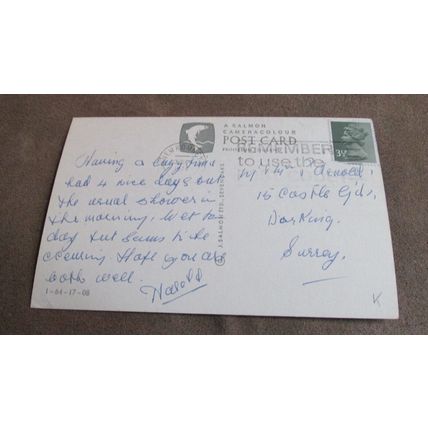 A SALMON
CAMERACOLOUR
POST CARD
REMEMBER
to use the
3½
Having a lazy time
had 4 nice days out
the usual shower in
the morning, wet to
day but seems to be
clearing Hope you are
both well.
Harold
1-64-17-08
J. SALMON LTD., SEVENOAKS
Mr & Mrs Arnold,
15 Castle Gdns,
Dorking.
Surrey.
K